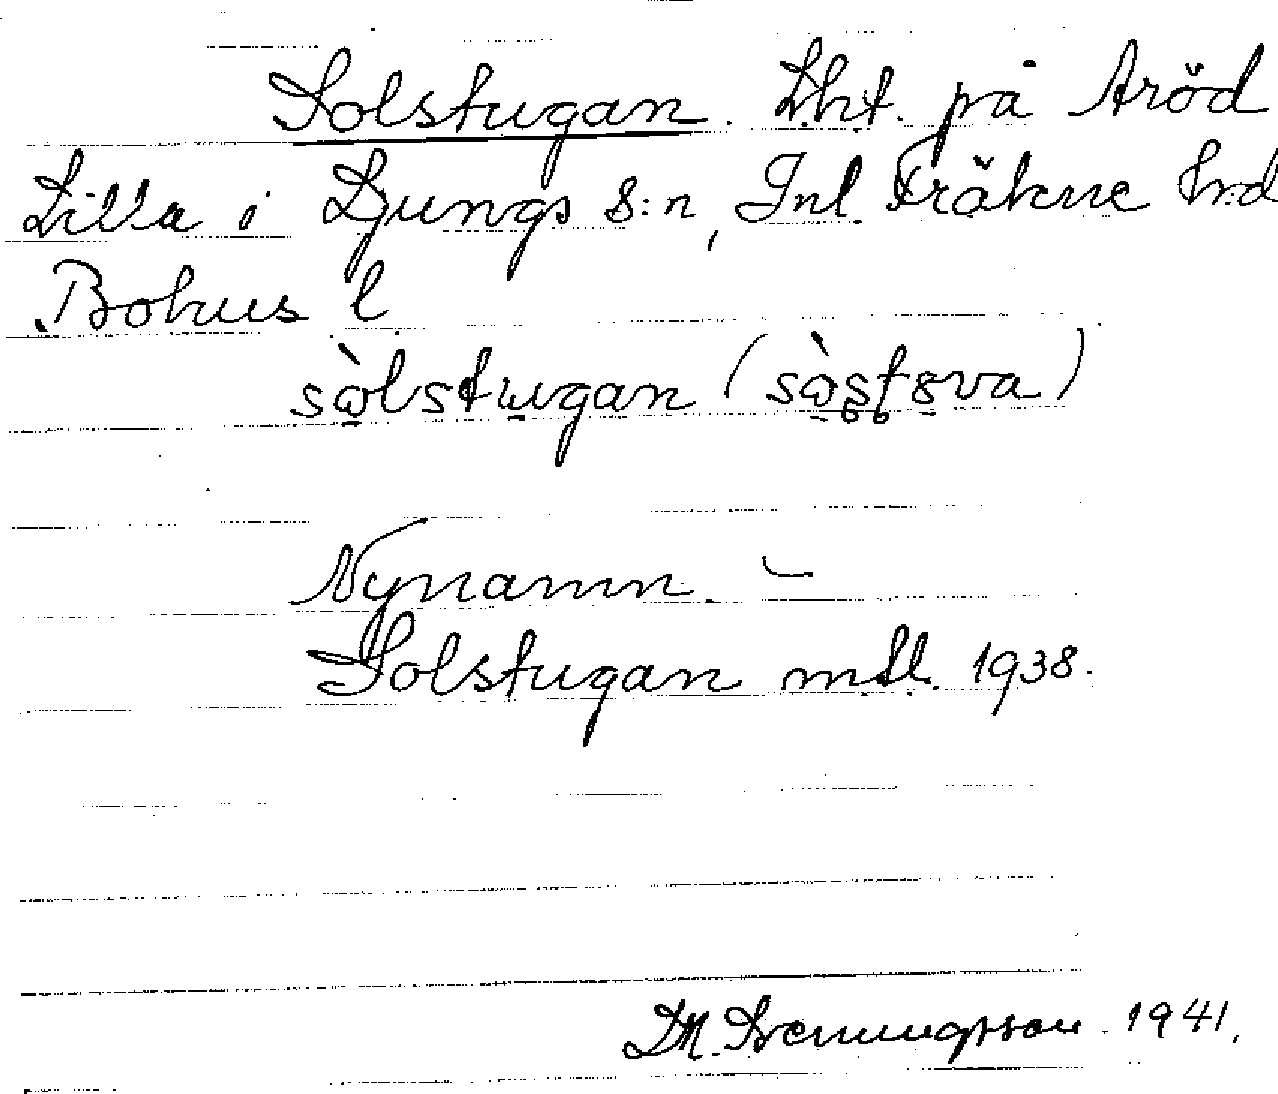 Solstugan. Lht. på Aröd
Lilla i Ljungs s:n, Inl. Fräkne hrd
Bohus l.
sòlstugan (sòstøva)
Nynamn. –
Solstugan mtl. 1938.
1941.